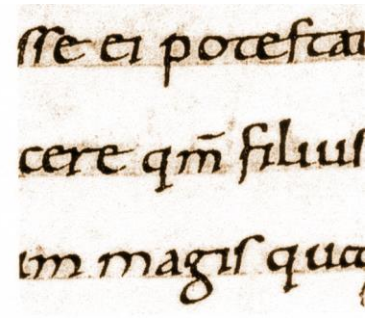 sse ei potestat
cere qm̄ filius
um magis qua